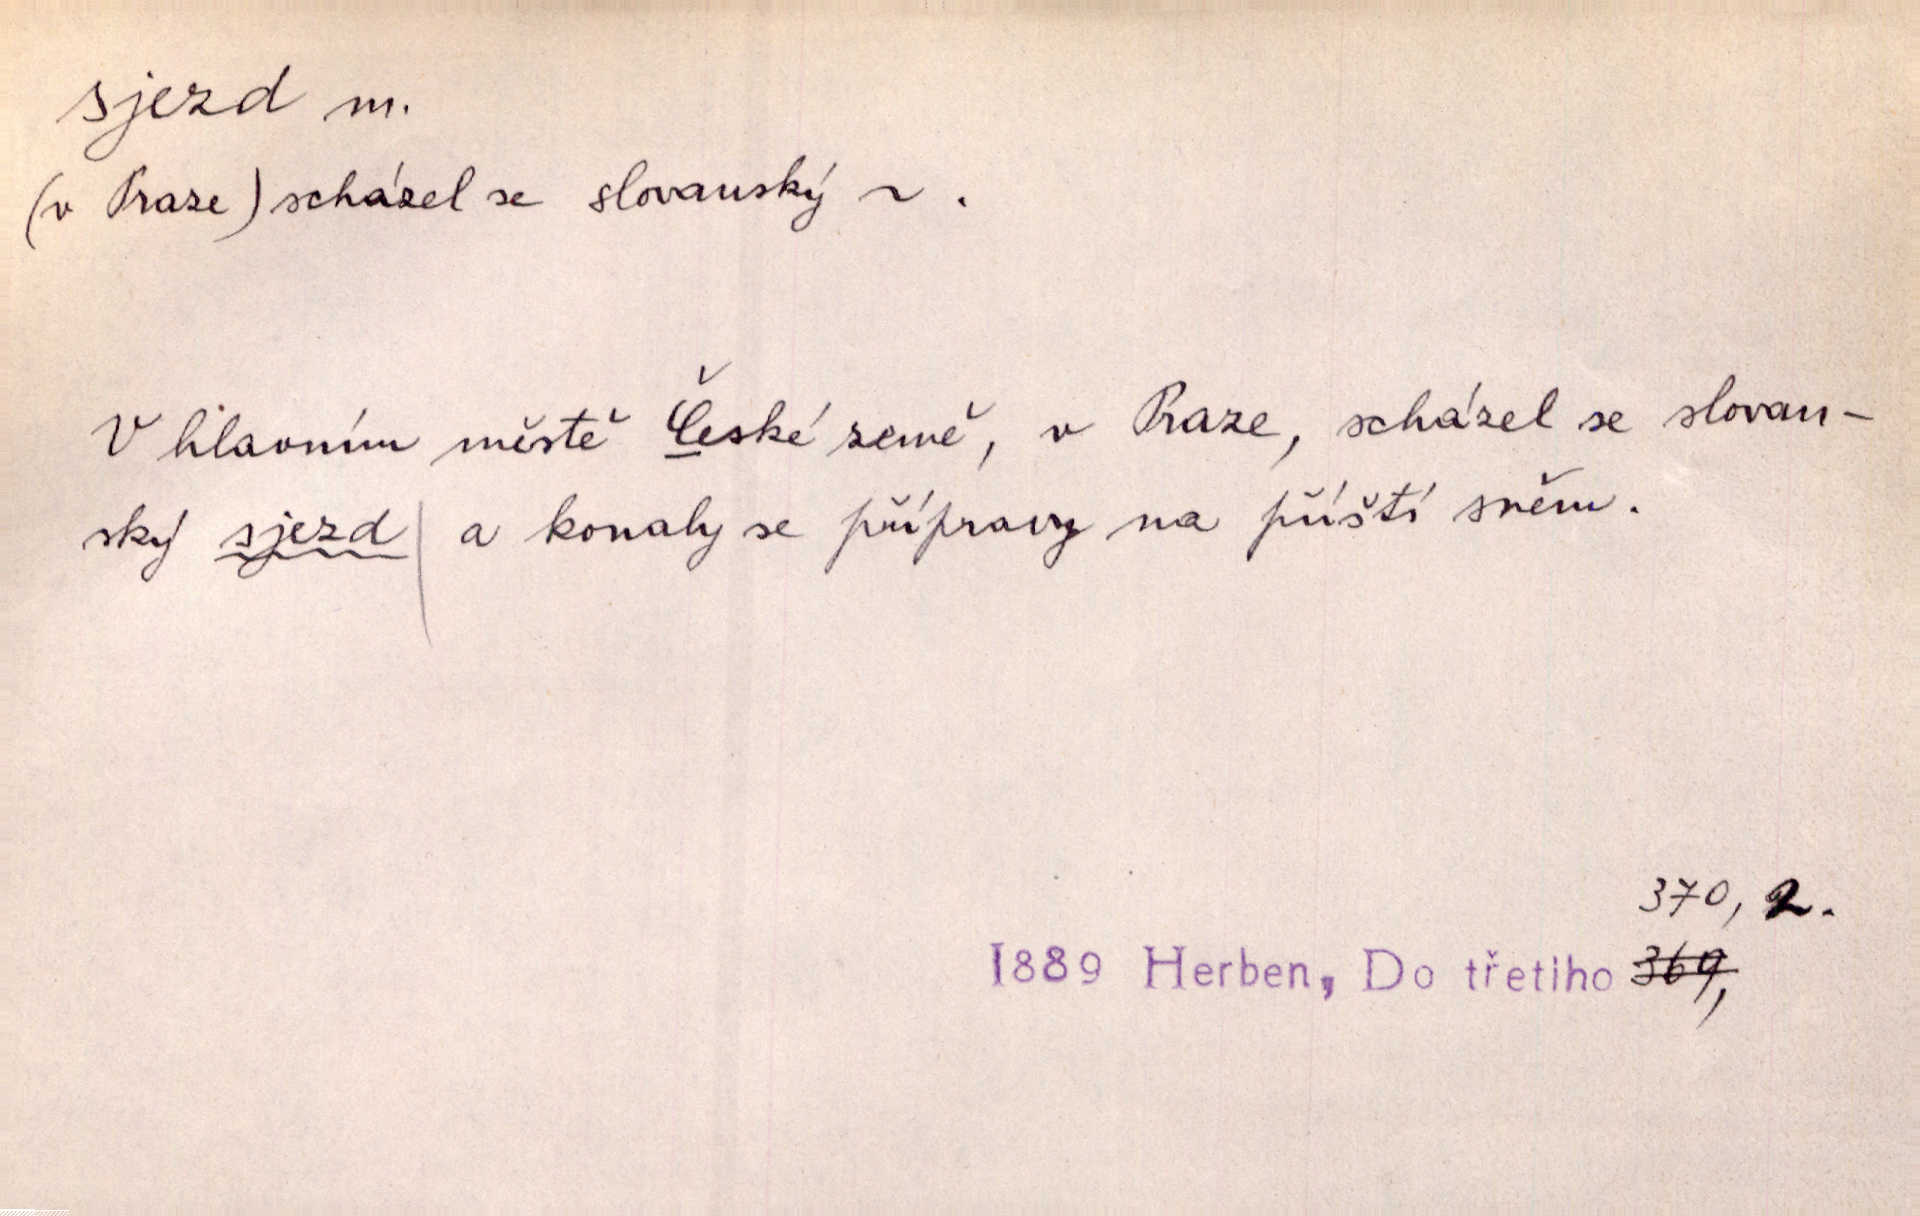 sjezd m.
(v Praze) scházel se slovanský ~ .
V hlavním městě České země, v Praze, scházel se slovan-
ský sjezd | a konaly se přípravy na příští sněm.
370, 2.
1889 Herben, Do třetího 369,